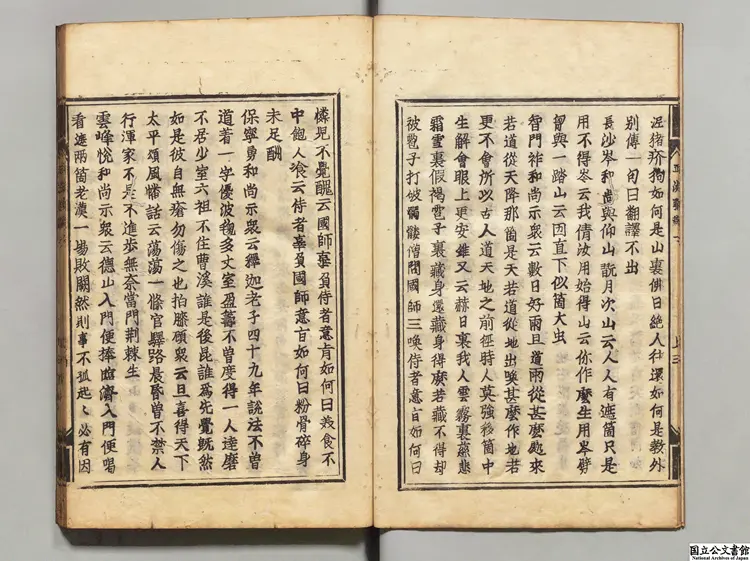 泥猪疥狗如何是山裏佛曰絶人往還如何是教外
別傳一句曰翻譯不出
長沙岑和尚與仰山翫月次山云人人有遮箇只是
用不得岑云我倩汝用始得山云你作麼生用岑劈
胷與一踏山云囙直下似箇大虫
智門祚和尚示衆云數日好雨且道雨從甚麼處來
若道從天降那箇是天若道從地出喚甚麼作地若
更不會所以古人道天地之前徑時人莫強移箇中
生解會眼上更安錐又云赫日裏我人雲霧裏慈悲
霜雪裏假褐雹子裏藏身還藏身得麼若藏不得却
被雹子打破髑髏僧問國師三喚侍者意旨如何曰
憐兒不覺醜云國師辜負侍者意旨如何曰美食不
中飽人飡云侍者辜負國師意旨如何曰粉骨碎身
未足酬
保寧勇和尚示衆云釋迦老子四十九年說法不曾
道着一字優波毱多丈室盈籌不曾度得一人達磨
不居少室六祖不住曹溪誰是後昆誰爲先覺旣然
如是彼自無瘡勿傷之也拍膝顧衆云且喜得天下
太平頌風幡話云蕩蕩一條官驛路晨昏曽不禁人
行渾家不是不進步無奈當門荆棘生
雲峰悅和尚示衆云德山入門便捧臨濟入門便喝
看遮兩箇老漢一場敗闕然則事不孤起〻必有因
上三
国立公文書館
National Archives of Japan